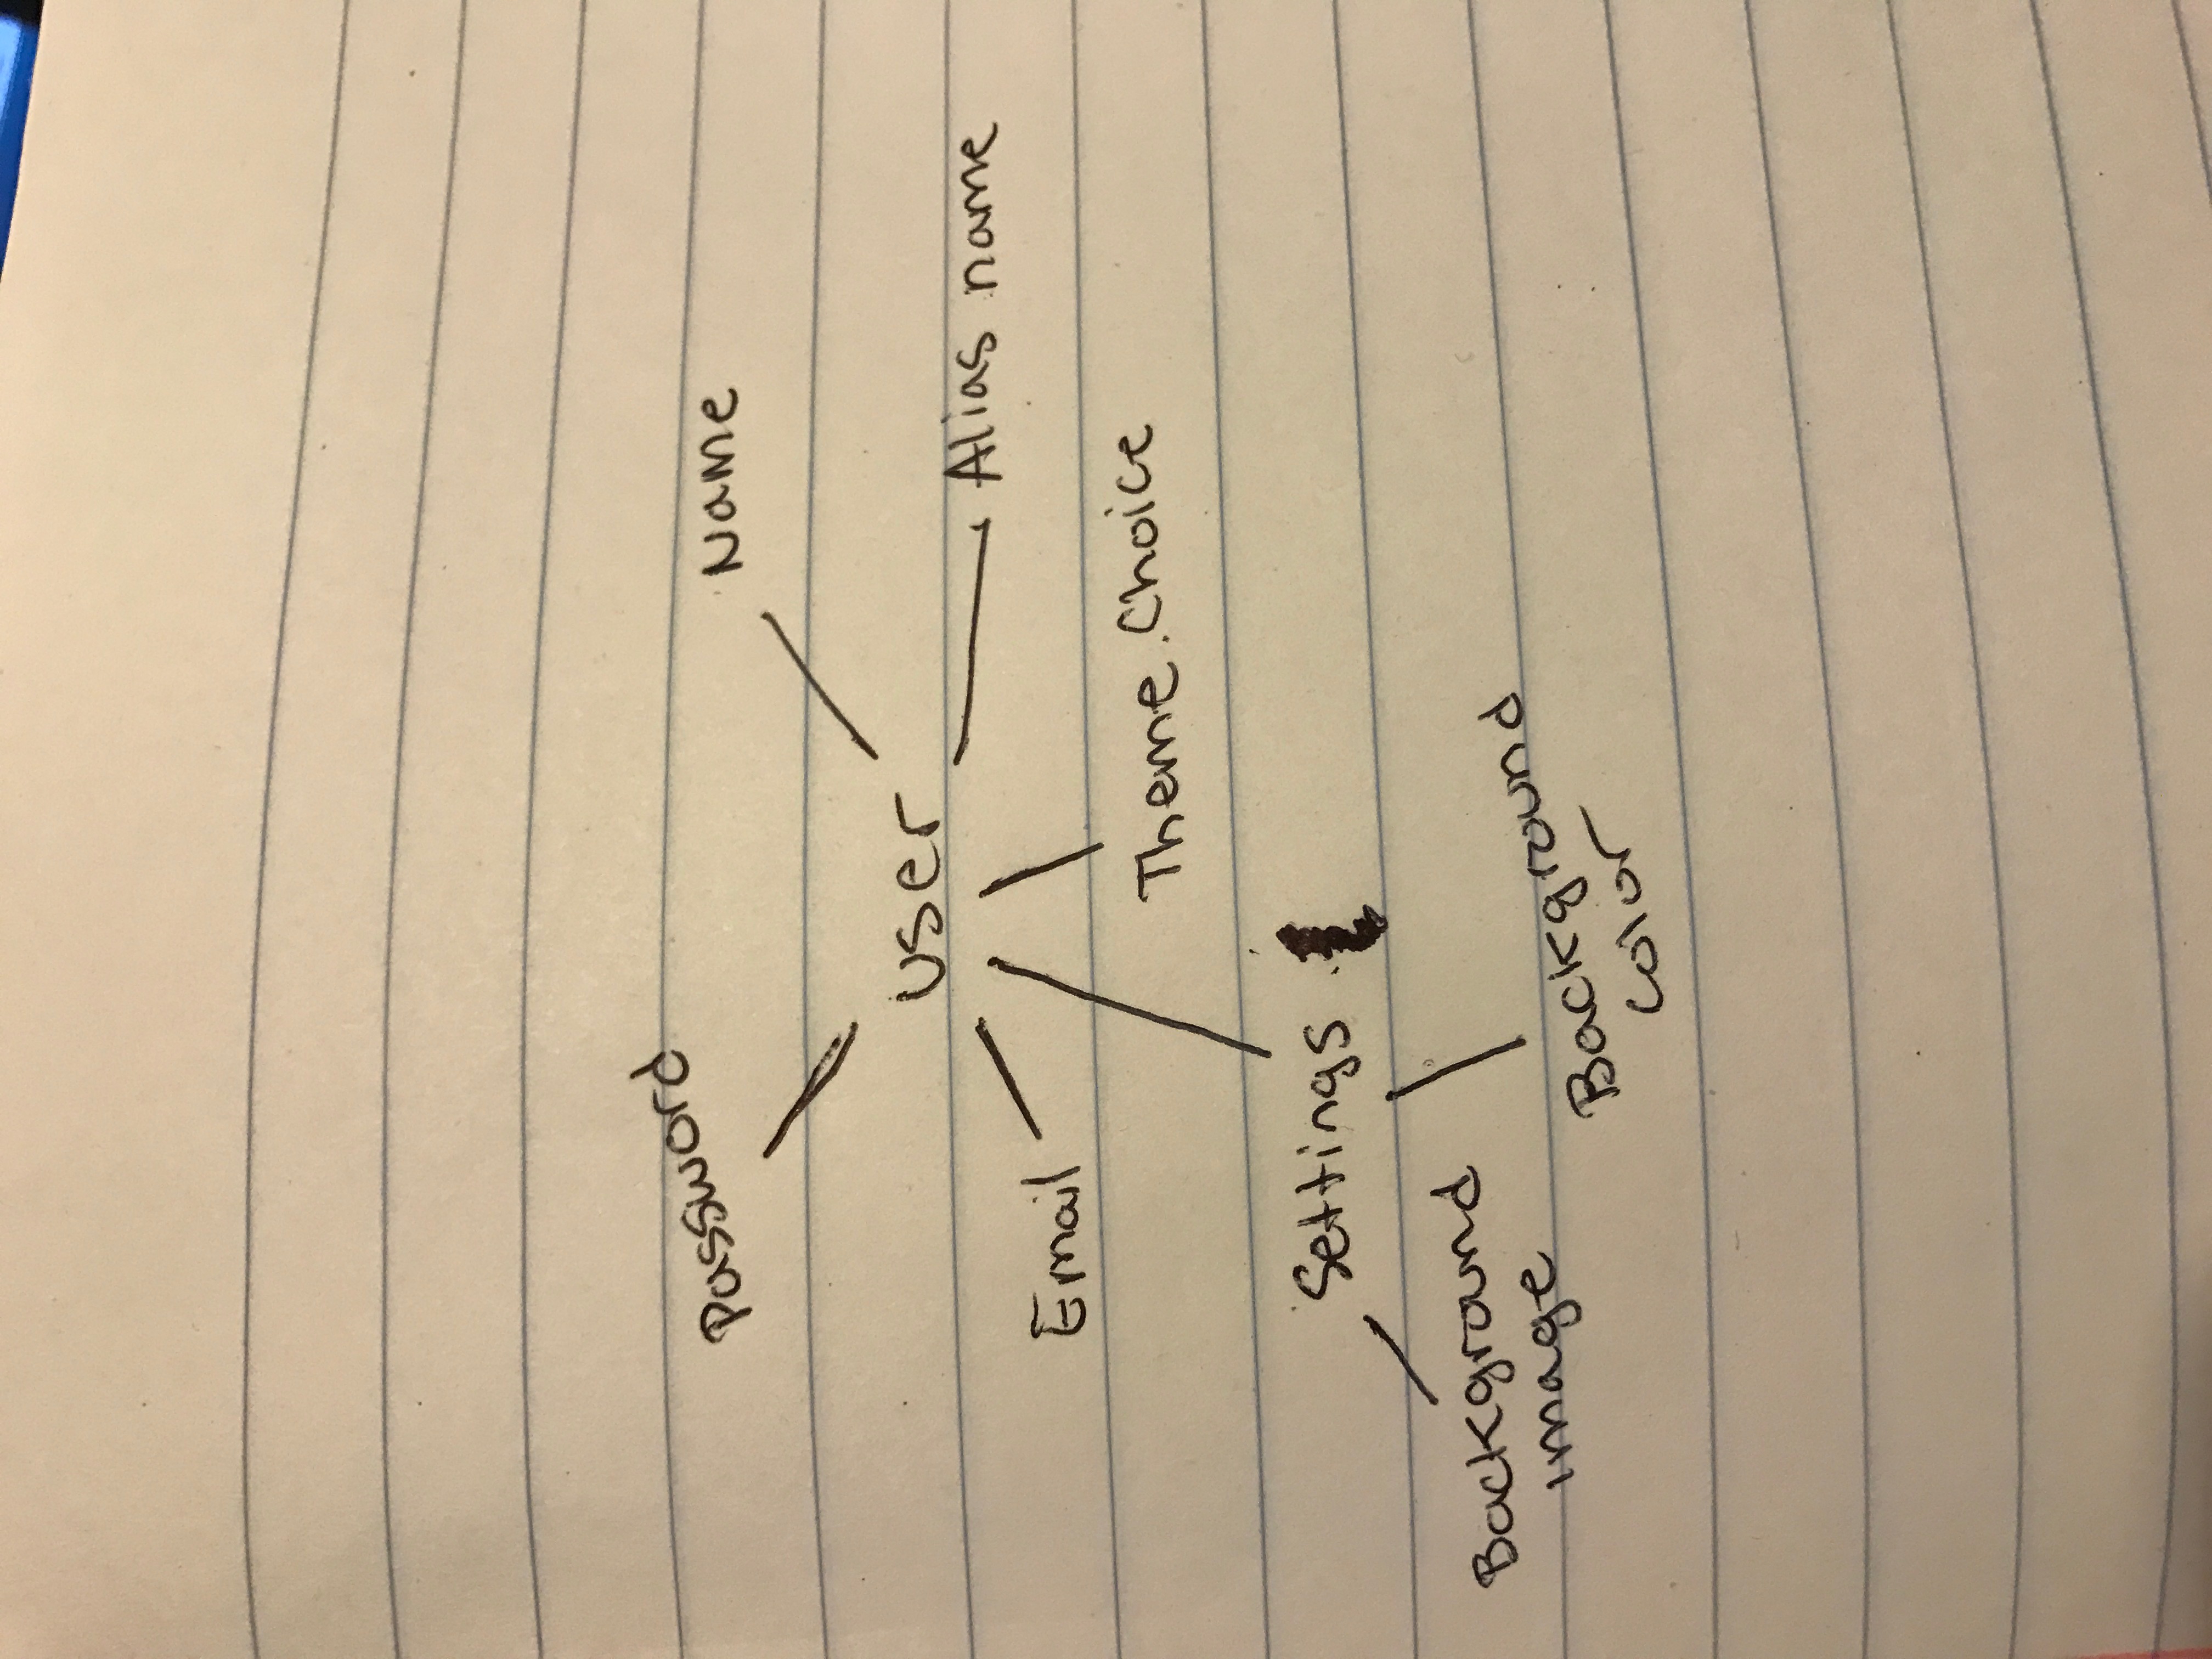 Password
Name
User
Alias name
Email
Theme.Choice
Settings
Background
image
Background
color